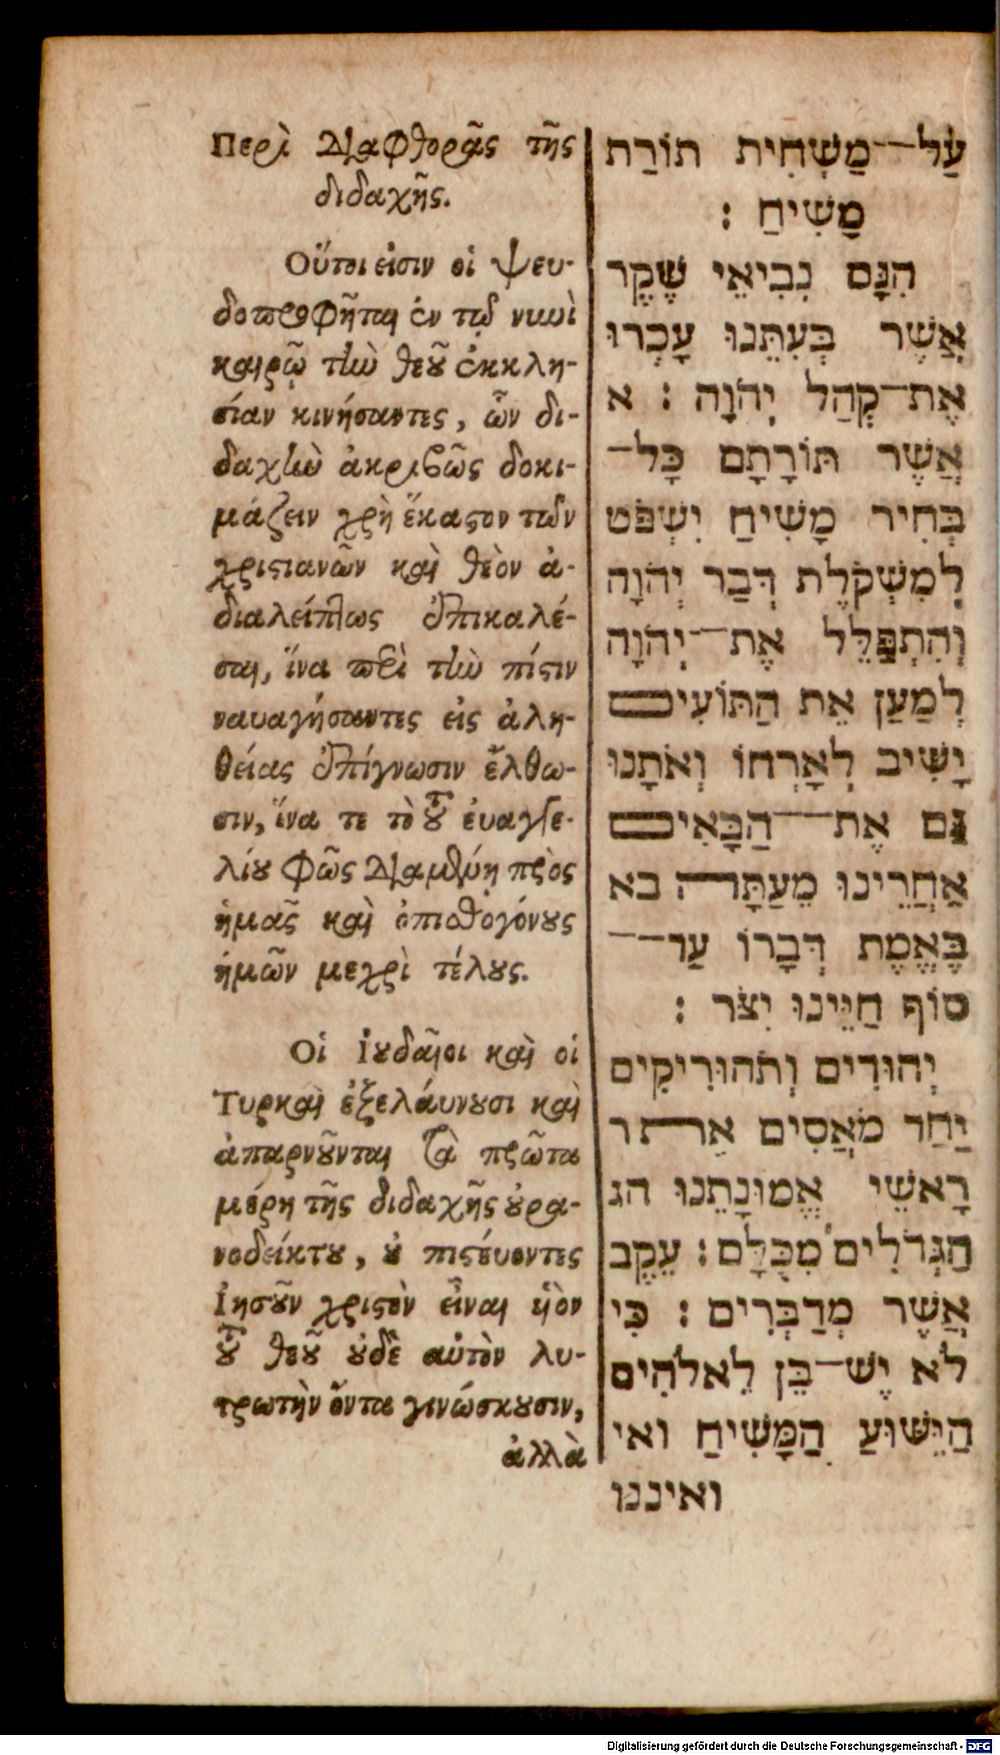 Περὶ Διαφθορᾶς τῆς
διδαχῆς.
Οὕτοι εἰσιν οἱ ψευ-
δοπροφῆται ἐν τῳ νυνὶ
καιρῷ τὴν θεοῦ ἐκκλη-
σίαν κινήσαντες, ὧν δι-
δαχὴν ἀκριβῶς δοκι-
μάζειν χρὴ ἕκαστον τῶν
χριστιανῶν καὶ θεὸν ἀ-
διαλείπτως ἐπικαλέ-
σαι, ἵνα περὶ τὴν πίστιν
ναυαγήσαντες εἰς ἀλη-
θείας ἐπίγνωσιν ἔλθω-
σιν, ἵνα τε τὸ τοῦ ἐυαγγε-
λίου φῶς Διαμένῃ πρὸς
ἡμᾶς καὶ ὀπισθογόνους
ἡμῶν μεχρὶ τέλους.
Οἱ Ἰουδαῖοι καὶ οἱ
Τυρκαὶ ἐξελάυνουσι καὶ
ἀπαρνοῦνται τὰ πρῶτα
μέρη τῆς διδαχῆς οὐρα-
νοδείκτου, οὐ πιστέυοντες
Ἰησοῦν χριστὸν εἶναι ὑὸν
τοῦ θεοῦ οὐδὲ αὐτὸν λυ-
τρωτὴν ὄντα γινώσκουσιν,
ἀλλὰ
עַל־מַשְׁחִית תּוֹרַת
מָשִׁיחַ :
הִנָּם נְבִיאֵי שֶׁקֶר
אֲשֶׁר בְּעִתֵּנוּ עָכְרוּ
אֶת־קְהַל יְהֹוָה : א
אֲשֶׁר תּוֹרָתָם כָּל־
בְּחִיר מָשִׁיחַ יִשְׁפֹּט
לְמִשְׁקֹלֶת דְּבַר יְהֹוָה
וְהִתְפַּלֵּל אֶת־יְהֹוָה
לְמַעַן אֵת הַתּוֹעִים
יָשִׁיב לְאָרְחוֹ וְאֹתָנוּ
גַּם אֶת־הַבָּאִים
אַחֲרֵינוּ מֵעַתָּה בא
בֶּאֱמֶת דְּבָרוֹ עַד־
סוֹף חַיֵּינוּ יִצֹּר :
יְהוּדִים וְתֹהוּרִיקִים
יַחַד מֹאֲסִים אֵת ר
רָאשֵׁי אֱמוּנָתֵנוּ הג
הַגְּדֹלִים מִכֻּלָּם : עֵקֶב
אֲשֶׁר מְדַבְּרִים : כִּי
לֹא יֶשׁ־בֵּן לֵאלֹהִים
הַיֵּשׁוּעַ הַמָּשִׁיחַ ואי
ואיננו
Digitalisierung gefördert durch die Deutsche Forschungsgemeinschaft - DFG